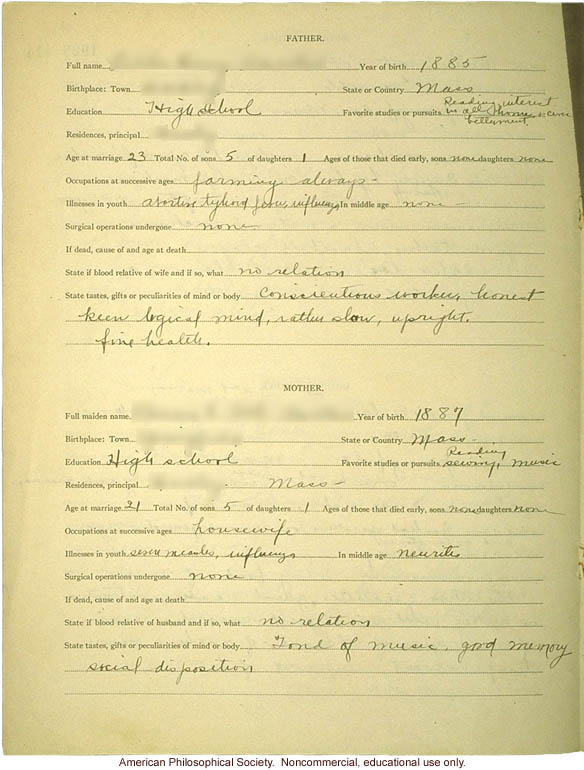 FATHER.
Full name Year of birth 1885
Birthplace: Town State or Country Mass
Education High school Favorite studies or pursuits Reading, interest in all
Residences, principal
Age at marriage 23 Total No. of sons 5 of daughters 1 Ages of those that died early, sons none daughters none
Occupations at successive ages farming always -
Illnesses in youth abortive typhoid fever, influenza In middle age none -
Surgical operations undergone none -
If dead, cause of and age at death
State if blood relative of wife and if so, what no relation
State tastes, gifts or peculiarities of mind or body Conscientious worker, honest
keen logical mind, rather slow, upright.
fine health.
MOTHER.
Full maiden name Year of birth 1887
Birthplace: Town State or Country Mass -
Education High school Favorite studies or pursuits Reading sewing, music
Residences, principal Mass -
Age at marriage 21 Total No. of sons 5 of daughters 1 Ages of those that died early, sons none daughters none
Occupations at successive ages housewife
Illnesses in youth severe measles, influenza In middle age neuritis
Surgical operations undergone none
If dead, cause of and age at death
State if blood relative of husband and if so, what no relation
State tastes, gifts or peculiarities of mind or body Fond of music, good memory
social disposition
American Philosophical Society. Noncommercial, educational use only.